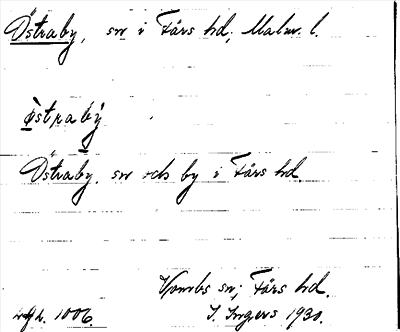 Östraby, sn i Färs hd, Malm. l.
östraby
Östraby. sn och by i Färs hd.
Vombs sn, Färs hd.
1006. I. Ingers 1930.